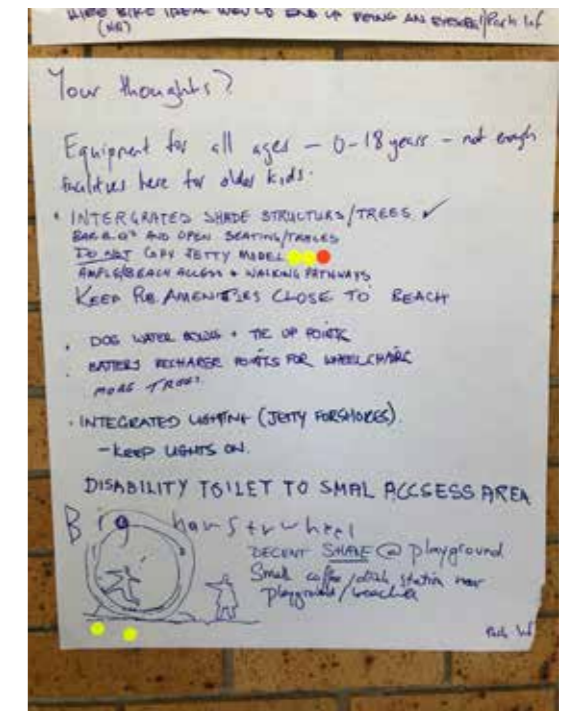 HIRE BIKE IDEA WOULD END UP BEING AN EYESORE/Park Inf
(NB)
Your thoughts?
Equipment for all ages - 0-18 years - not enough
facilities here for older kids.
• INTERGRATED SHADE STRUCTURS/TREES ✓
BAR.B.Q'S AND OPEN SEATING/TABLES
DO NOT COPY JETTY MODEL
AMPLE/BEACH ACCESS + WALKING PATHWAYS
KEEP AMENITIES CLOSE TO BEACH
• DOG WATER BOWLS + TIE UP POINTS
• BATTERY RECHARGE POINTS FOR WHEELCHAIRS
MORE TREES
• INTEGRATED LIGHTING (JETTY FORSHORES).
- KEEP LIGHTS ON.
DISABILITY TOILET TO SMAL ACCSESS AREA
Big hamstrwheel
DECENT SHADE @ playground
Small coffee/drink station near
playground/beaches
Park Inf